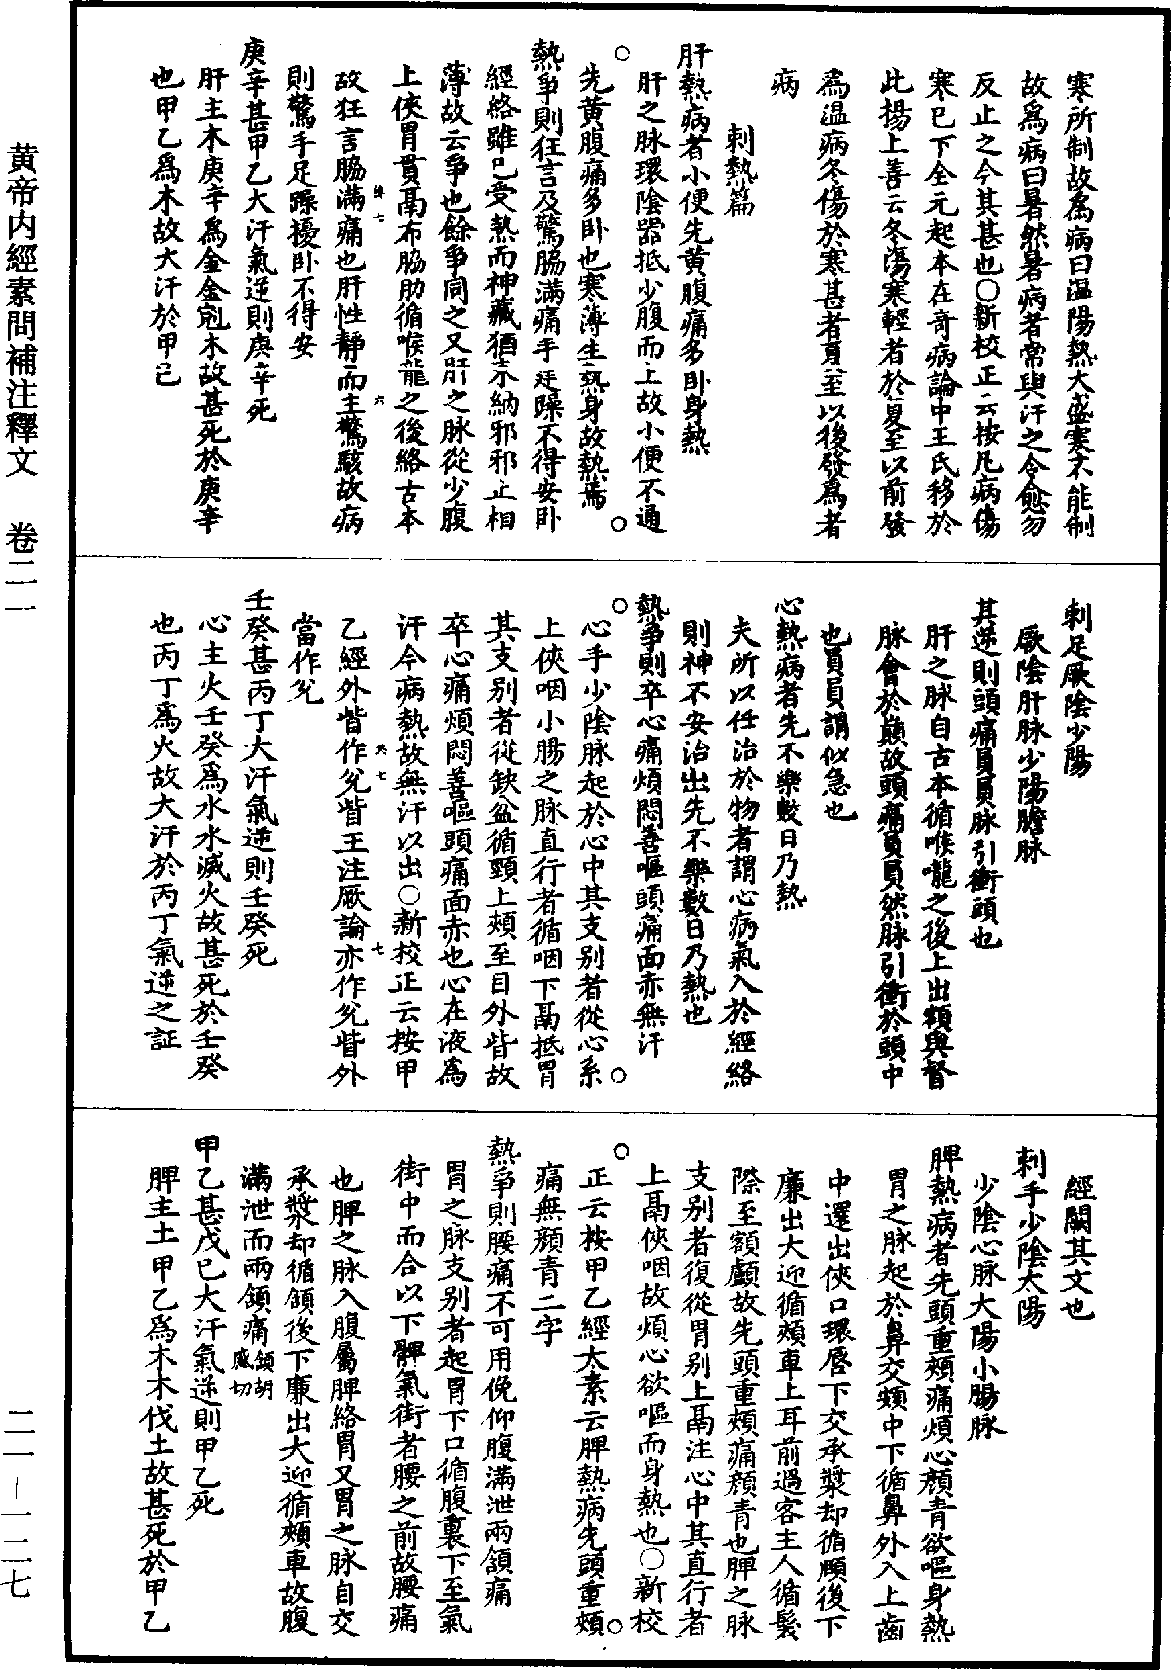 寒所制故為病曰温陽熱大盛寒不能制
故為病曰暑然暑病者當與汗之令愈勿
反止之令其甚也○新校正云按凡病傷
寒已下全元起本在奇病論中王氏移於
此揚上善云冬傷寒輕者於夏至以前發
為温病冬傷於寒甚者夏至以後發為者
病
刺熱篇
肝熱病者小便先黄腹痛多卧身熱
肝之脉環陰器抵少腹而上故小便不通
先黄腹痛多卧也寒薄生熱身故熱焉
熱爭則狂言及驚脇滿痛手足躁不得安卧
經絡雖已受熱而神藏猶未納邪邪正相
薄故云爭也餘爭同之又肝之脉從少腹
上俠胃貫鬲布脇肋循喉嚨之後絡古本
故狂言脇滿痛也肝性靜而主驚駭故病
則驚手足躁擾卧不得安
庚辛甚甲乙大汗氣逆則庚辛死
肝主木庚辛為金金尅木故甚死於庚辛
也甲乙為木故大汗於甲乙
刺足厥陰少陽
厥陰肝脉少陽膽脉
其逆則頭痛員員脉引衝頭也
肝之脉自古本循喉嚨之後上出額與督
脉會於巔故頭痛員員然脉引衝於頭中
也員員謂似急也
心熱病者先不樂數日乃熱
夫所以任治於物者謂心病氣入於經絡
則神不安治出先不樂數日乃熱也
熱爭則卒心痛煩悶善嘔頭痛面赤無汗
心手少陰脉起於心中其支别者從心系
上俠咽小腸之脉直行者循咽下鬲抵胃
其支别者從缺盆循頸上頰至目外眥故
卒心痛煩悶善嘔頭痛面赤也心在液為
汗今病熱故無汗以出○新校正云按甲
乙經外眥作兊眥王注厥論亦作兊眥外
當作兊
壬癸甚丙丁大汗氣逆則壬癸死
心主火壬癸為水水滅火故甚死於壬癸
也丙丁為火故大汗於丙丁氣逆之証
經闕其文也
刺手少陰太陽
少陰心脉大陽小腸脉
脾熱病者先頭重頰痛煩心顔青欲嘔身熱
胃之脉起於鼻交頞中下循鼻外入上齒
中還出俠口環唇下交承漿却循頤後下
廉出大迎循頰車上耳前過客主人循髮
際至額顱故先頭重頰痛顔青也脾之脉
支别者復從胃别上鬲注心中其直行者
上鬲俠咽故煩心欲嘔而身熱也○新校
正云按甲乙經太素云脾熱病先頭重頰
痛無顔青二字
熱爭則腰痛不可用俛仰腹滿泄兩頷痛
胃之脉支别者起胃下口循腹裏下至氣
街中而合以下髀氣街者腰之前故腰痛
也脾之脉入腹屬脾絡胃又胃之脉自交
承漿却循頤後下廉出大迎循頰車故腹
滿泄而兩頷痛頷胡感切
甲乙甚戊己大汗氣逆則甲乙死
脾主土甲乙為木木伐土故甚死於甲乙
黄帝内經素問補注釋文　卷二一
二一－一二七